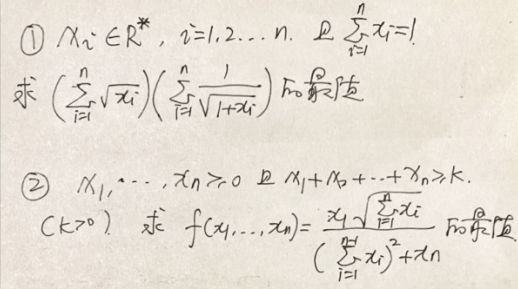 ① xᵢ∈R*, i=1,2...n. 且 ∑ᵢ₌₁ⁿ xᵢ=1.
求 (∑ᵢ₌₁ⁿ √xᵢ)(∑ᵢ₌₁ⁿ 1/√(1+xᵢ)) 的最值
② x₁,...,xₙ≥0 且 x₁+x₂+...+xₙ≥k.
(k>0) 求 f(x₁,...,xₙ)= x₁√(∑ᵢ₌₁ⁿ xᵢ) / ((∑ᵢ₌₁ⁿ⁻¹ xᵢ)²+xₙ) 的最值